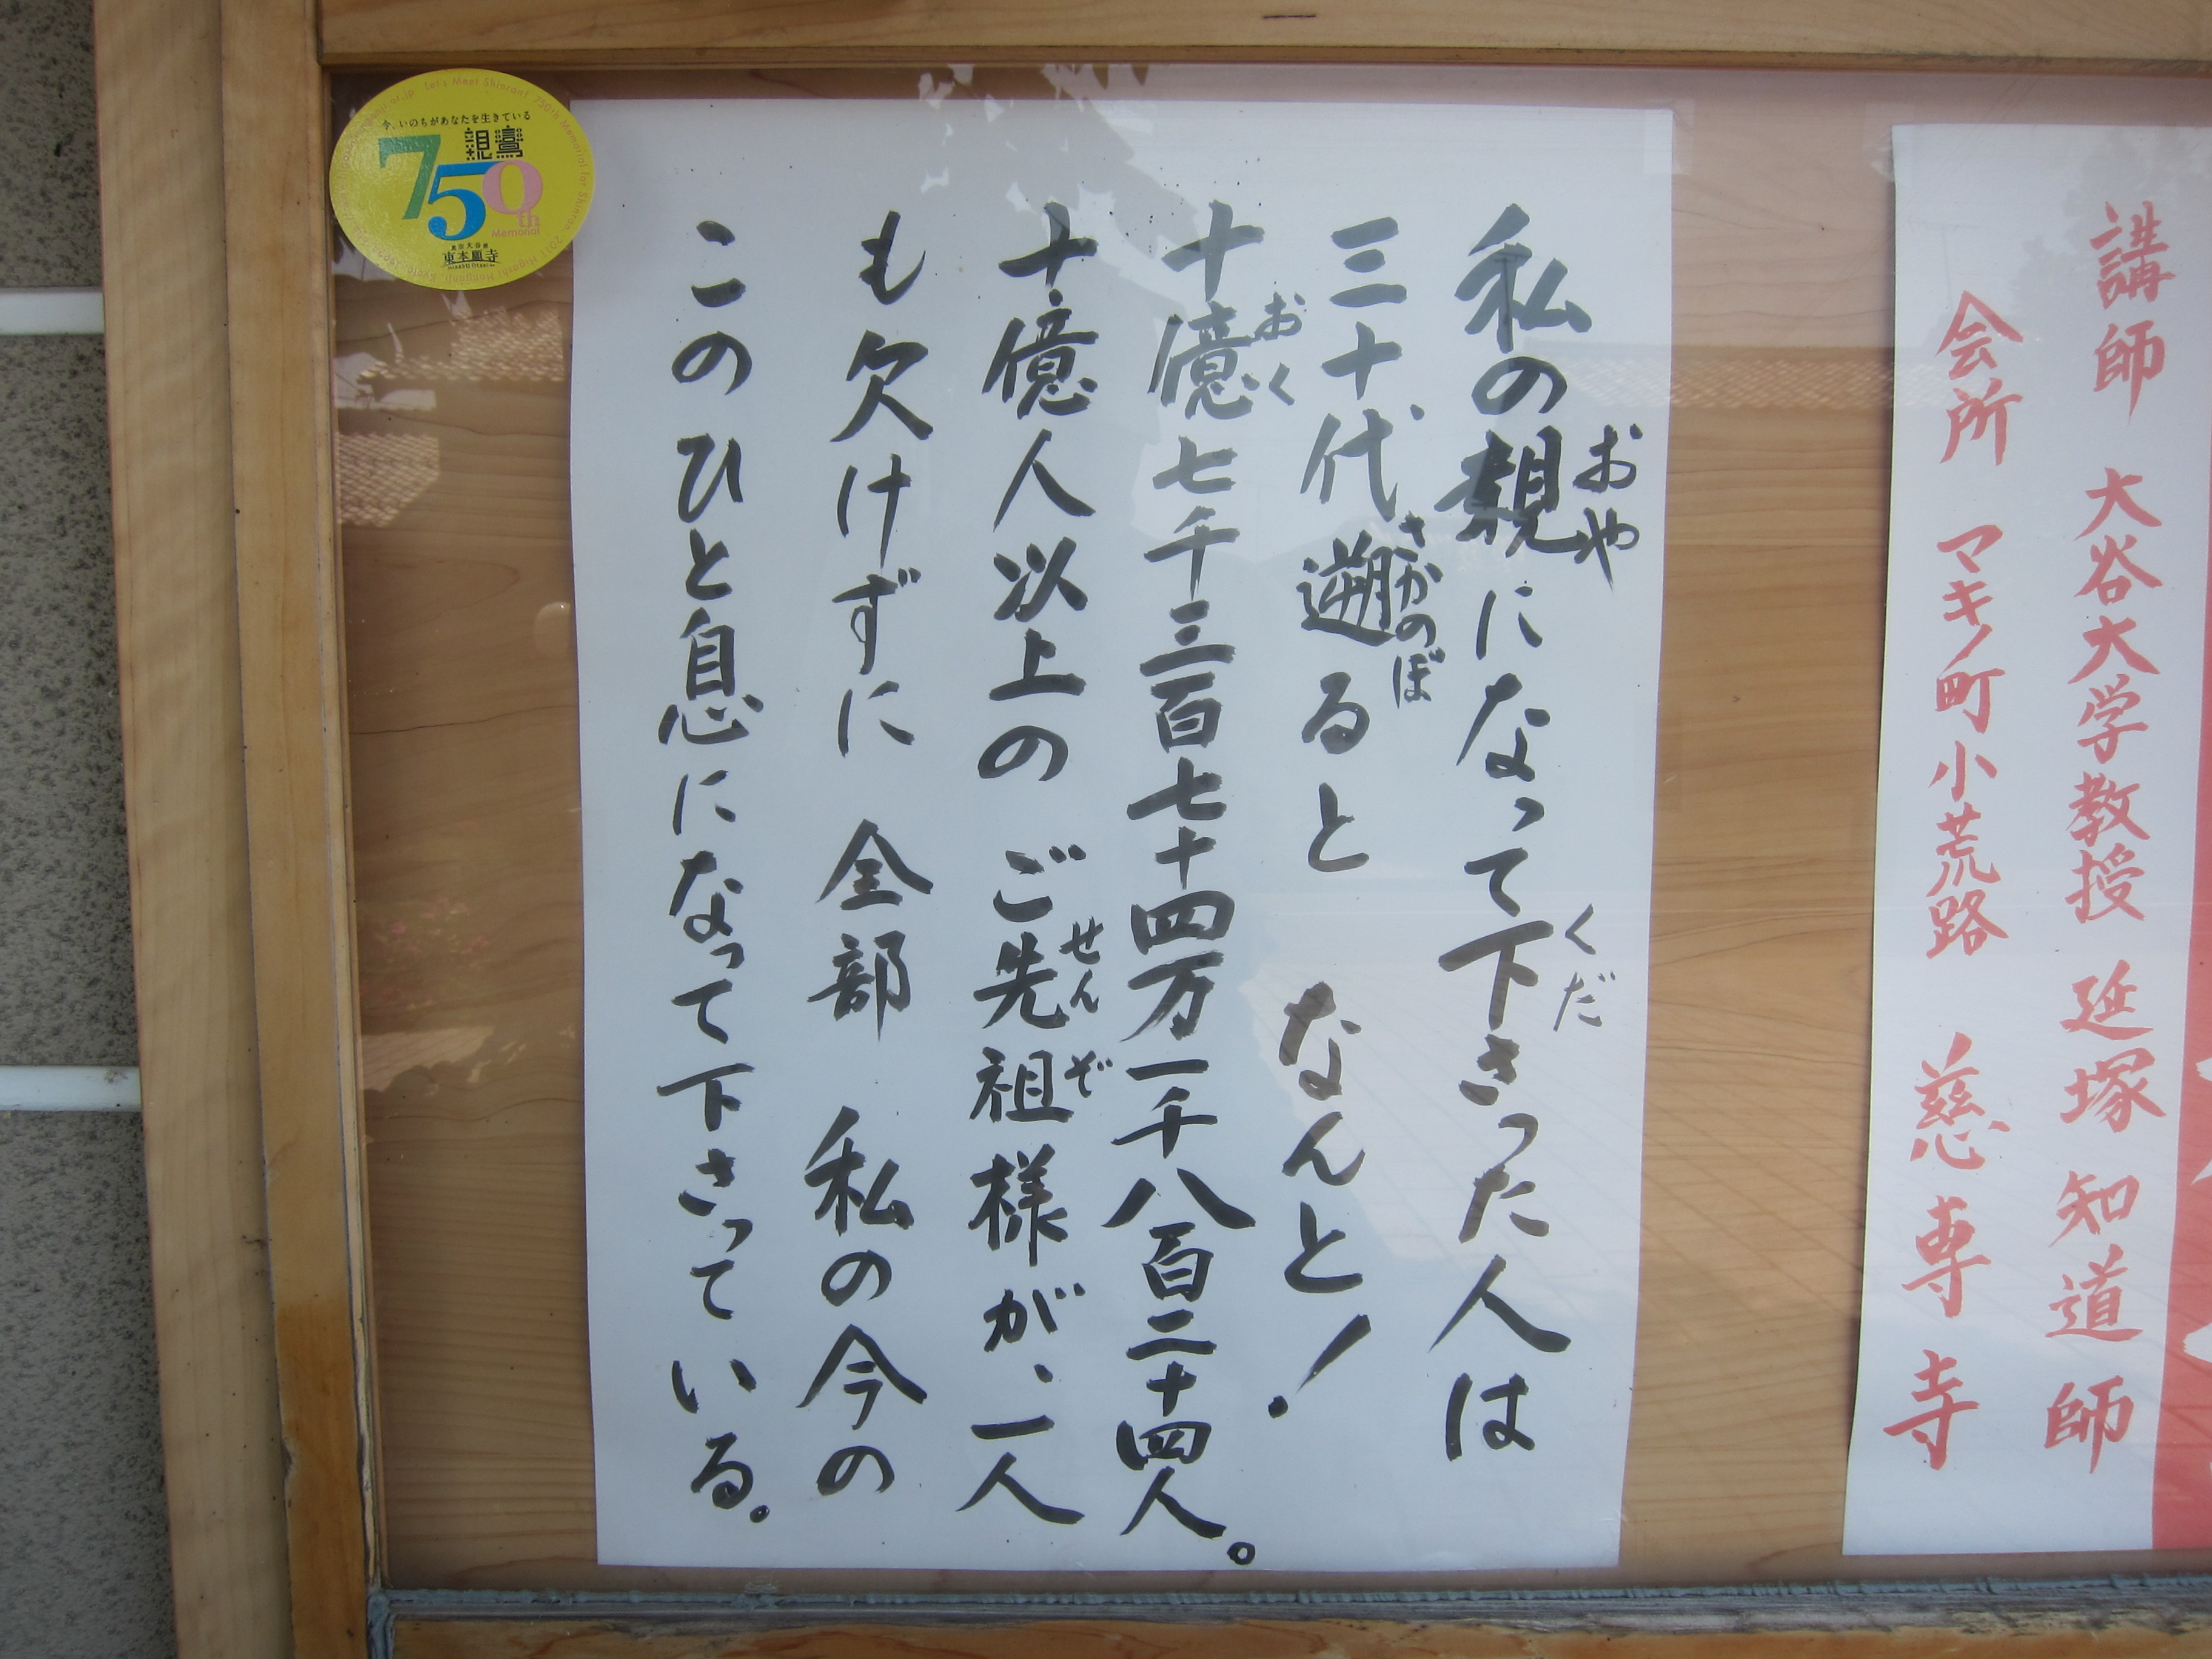 講師 大谷大学教授 延塚知道師
会所 マキノ町小荒路 慈専寺
私の親になって下さった人は
おや
くだ
三十代遡ると なんと!
さかのぼ
十億七千三百七十四万一千八百二十四人。
おく
十億人以上の ご先祖様が、一人
せんぞ
も欠けずに 全部 私の今の
このひと息になって下さっている。
今、いのちがあなたを生きている
親鸞
750th
Memorial
真宗大谷派
東本願寺